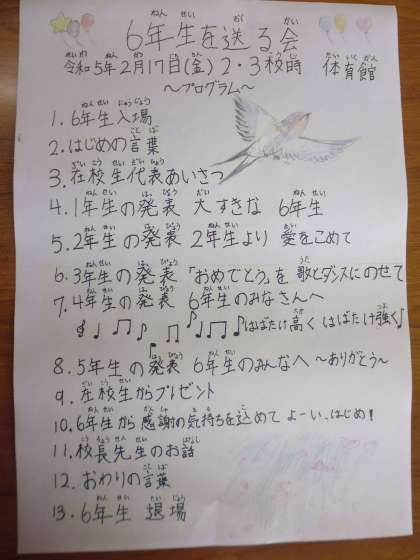 6年生を送る会
令和5年2月17日(金) 2・3校時 体育館
〜プログラム〜
1. 6年生入場
2. はじめの言葉
3. 在校生代表あいさつ
4. 1年生の発表 大すきな 6年生
5. 2年生の発表 2年生より 愛をこめて
6. 3年生の発表 「おめでとう」を 歌とダンスにのせて
7. 4年生の発表 6年生のみなさんへ
はばたけ高く はばたけ強く
8. 5年生の発表 6年生のみんなへ 〜ありがとう〜
9. 在校生からプレゼント
10. 6年生から 感謝の気持ちを込めて よーい、はじめ!
11. 校長先生のお話
12. おわりの言葉
13. 6年生 退場